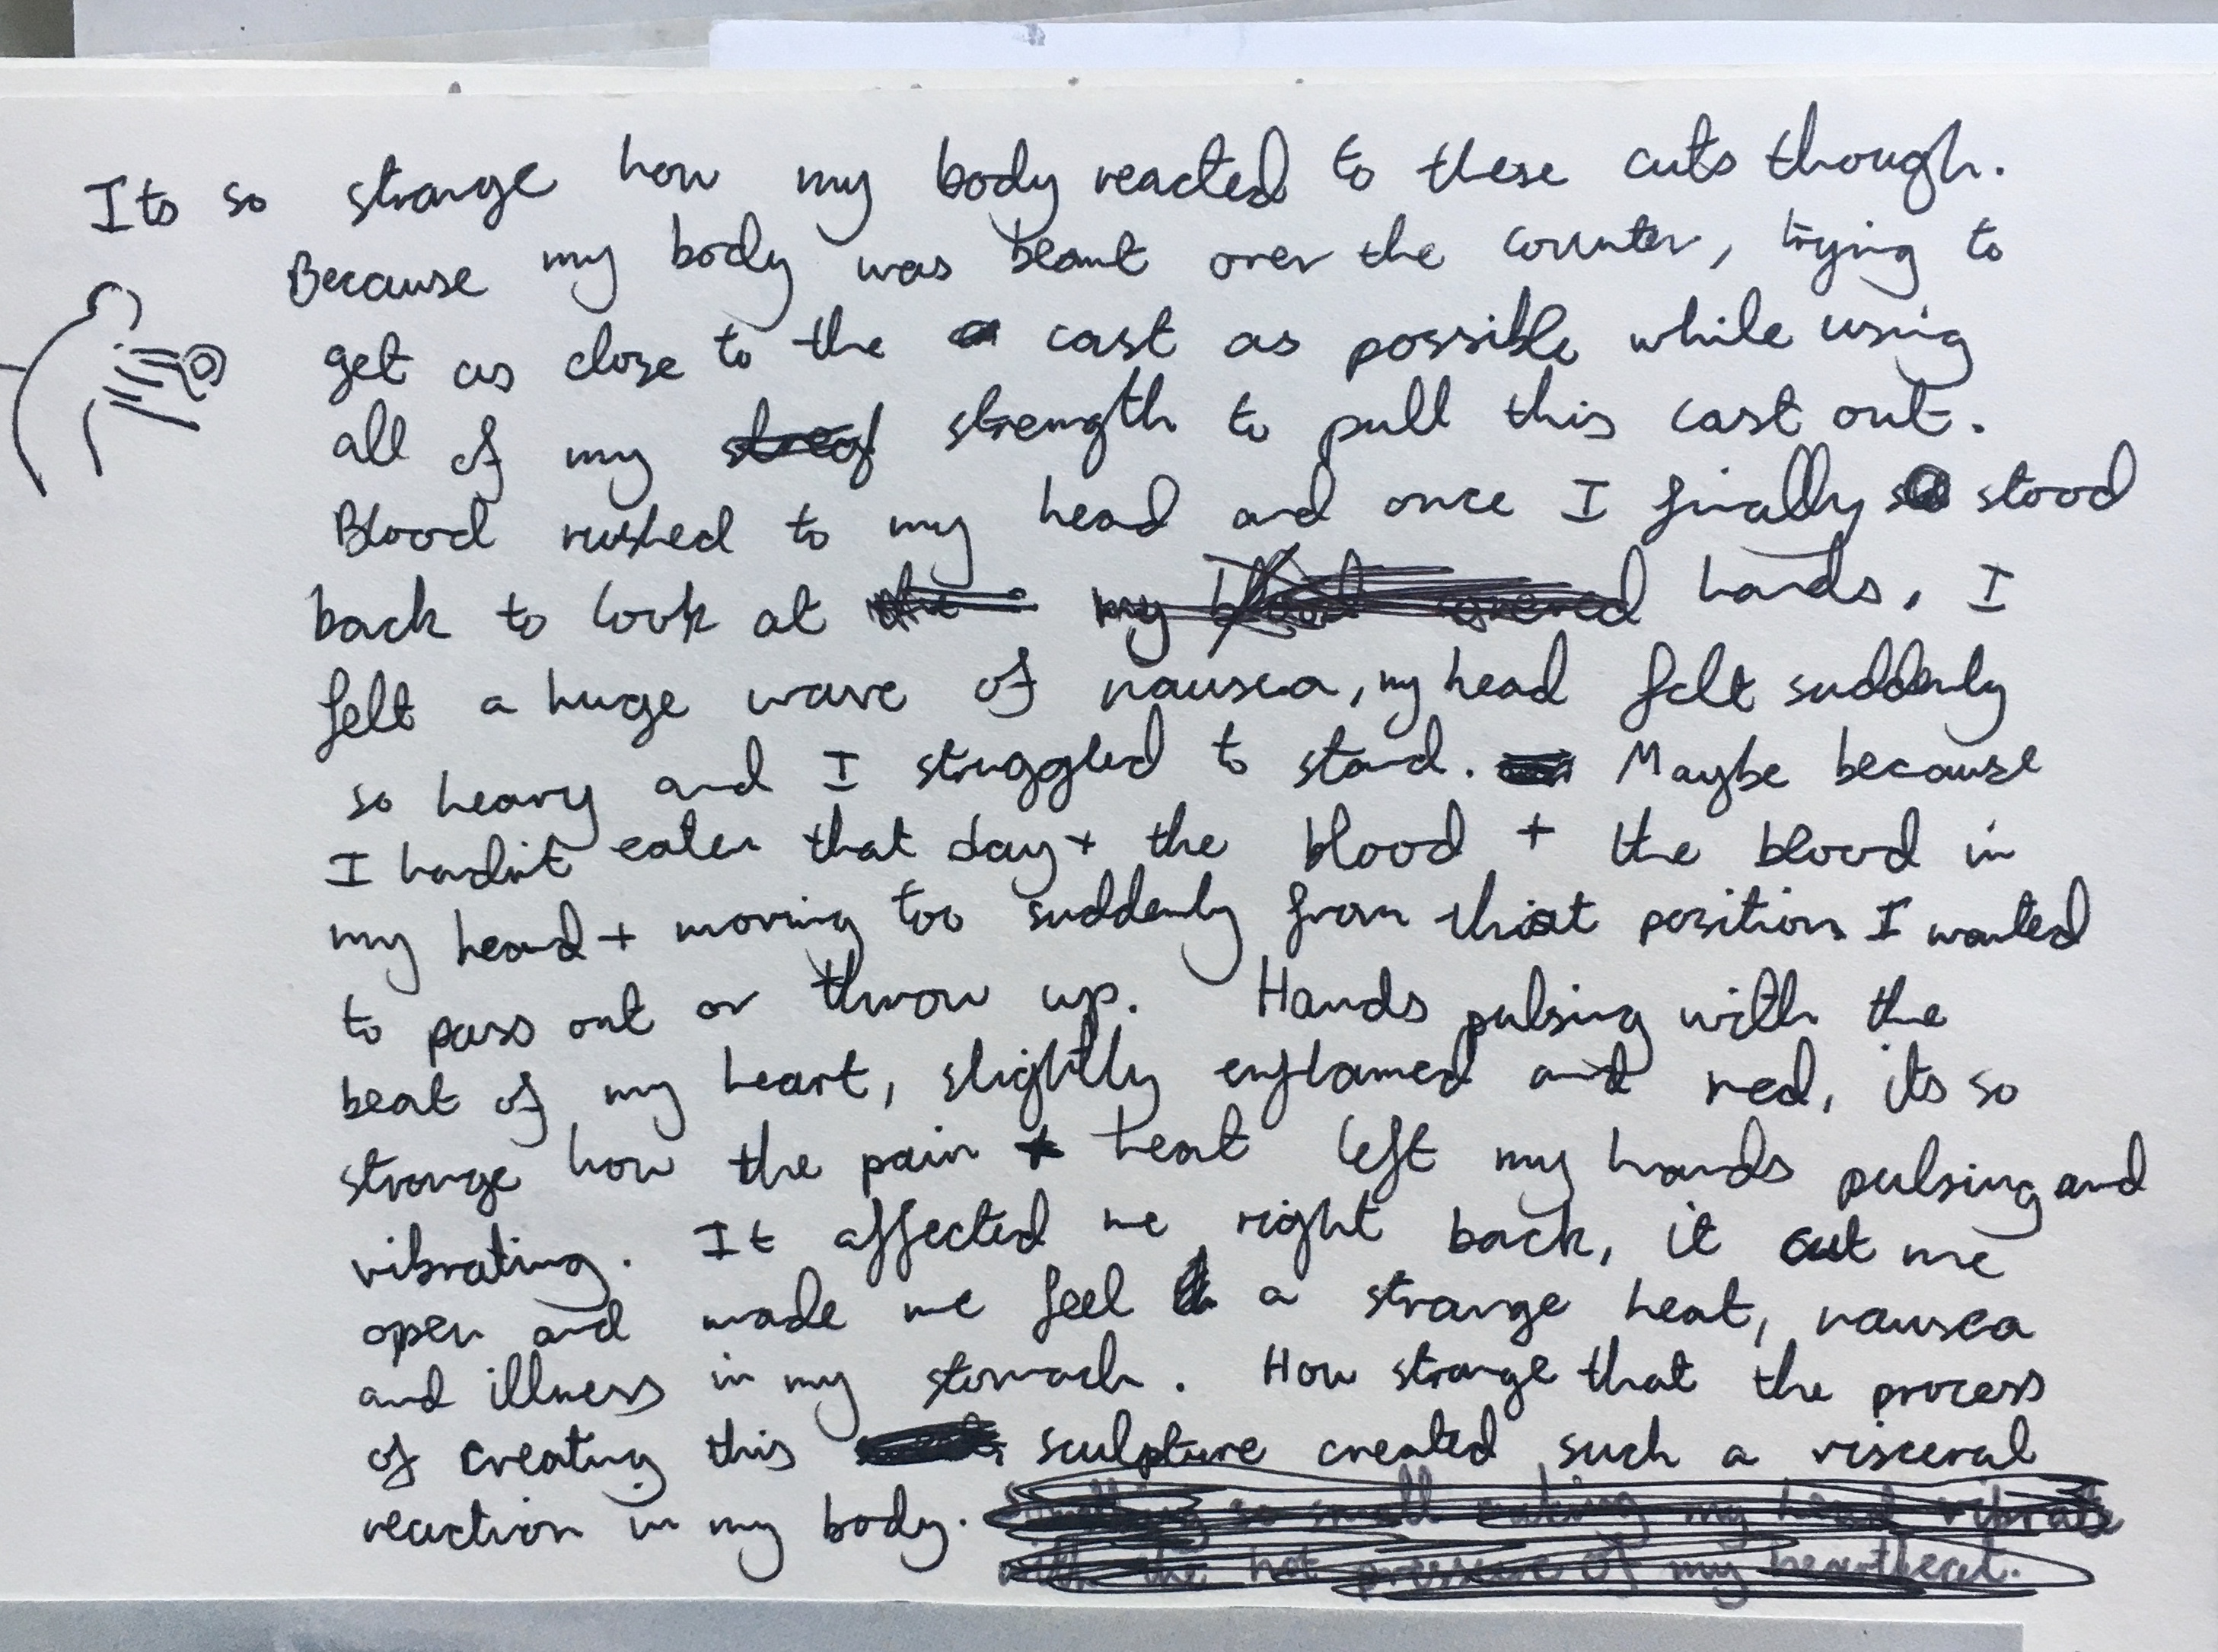 Its so strange how my body reacted to these cuts though.
Because my body was beant over the counter, trying to
get as close to the cast as possible while using
all of my streng strength to pull this cast out.
Blood rushed to my head and once I finally stood
back to look at the my blood covered hands, I
felt a huge wave of nausea, my head felt suddenly
so heavy and I struggled to stand. Maybe because
I hadn't eaten that day + the blood + the blood in
my head + moving too suddenly from that position I wanted
to pass out or throw up. Hands pulsing with the
beat of my heart, slightly enflamed and red, its so
strange how the pain + heat left my hands pulsing and
vibrating. It affected me right back, it cut me
open and made me feel a strange heat, nausea
and illness in my stomach. How strange that the process
of creating this sculpture created such a visceral
reaction in my body. Something so small making my head vibrate
with the hot pressure of my heartbeat.